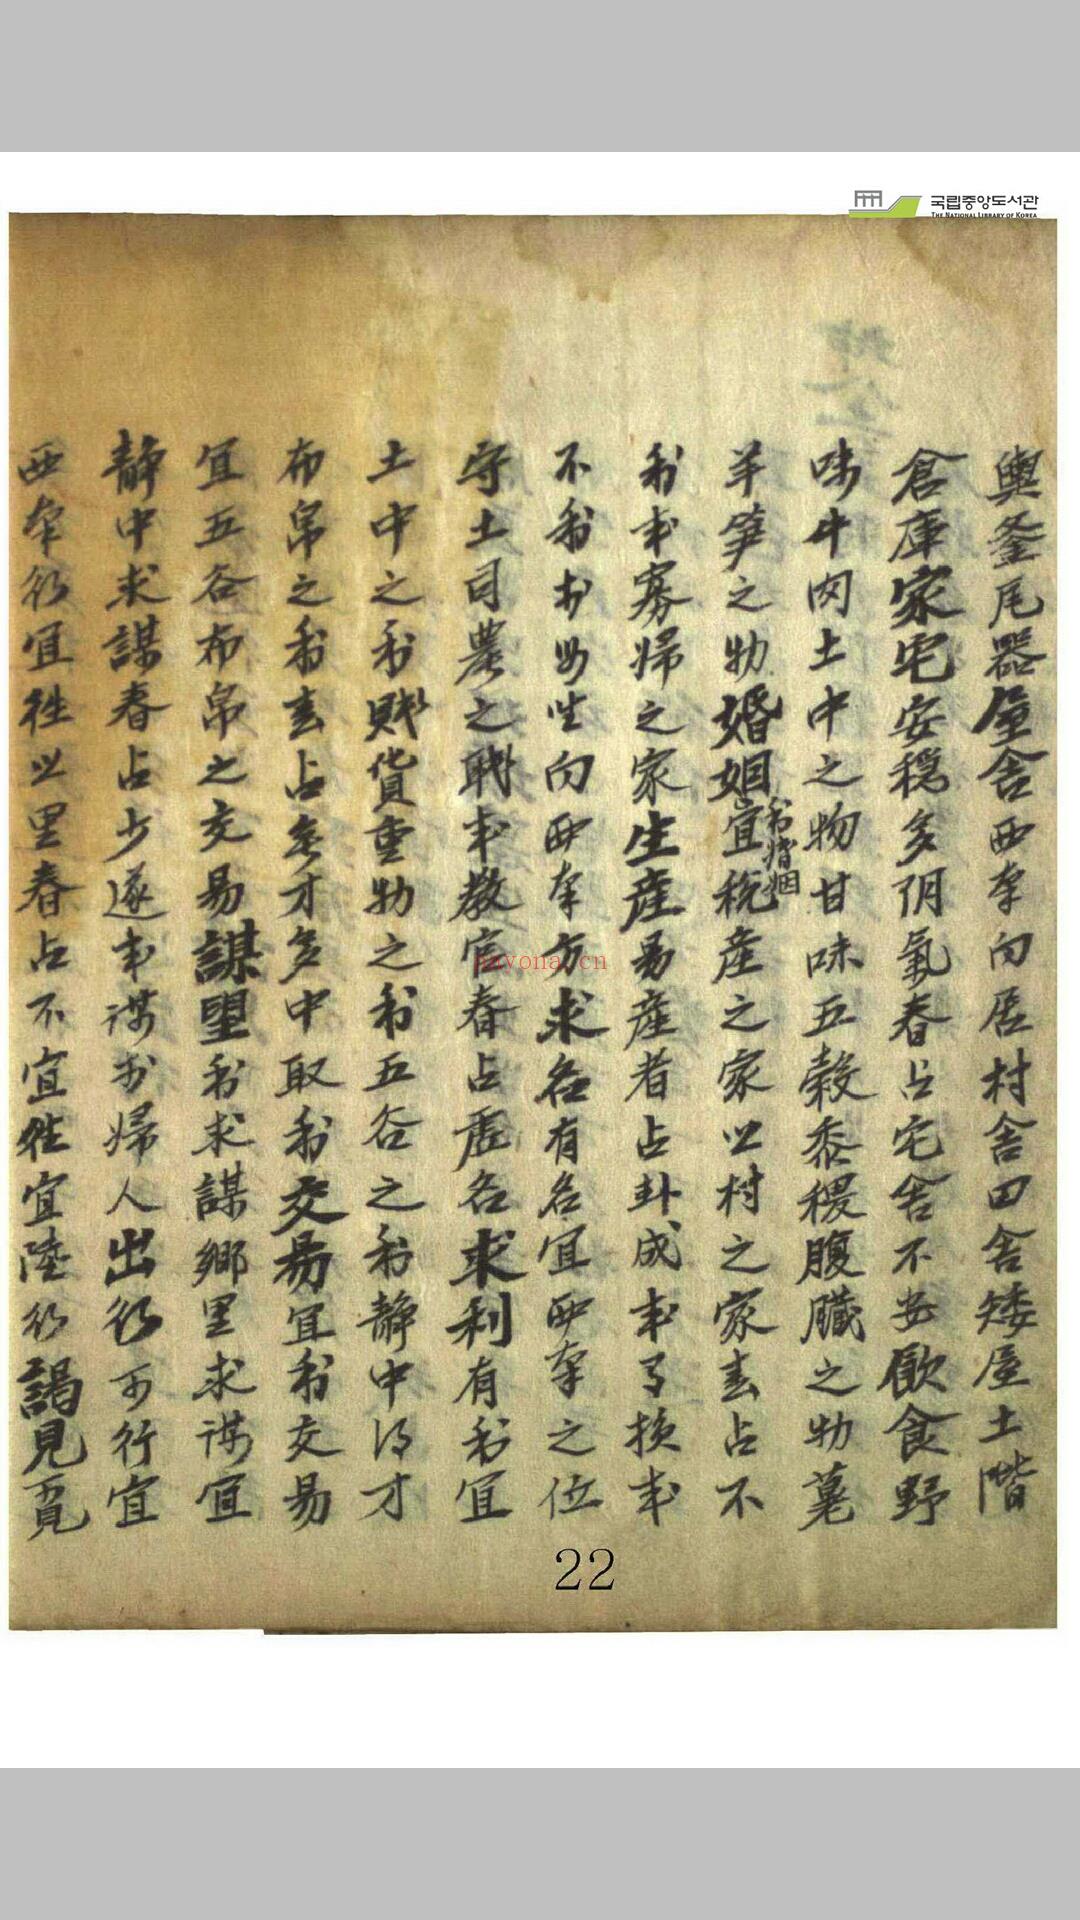 국립중앙도서관
THE NATIONAL LIBRARY OF KOREA
輿釜瓦器屋舍西南向居村舍田舍矮屋土階
倉庫家宅安穩多阴氣春占宅舍不安飮食野
味牛肉土中之物甘味五穀黍稷腹臟之物薯
羊笋之物婚姻宜稅產之家以村之家春占不
利或寡婦之家生産易産者占卦成或了损或
不利於母坐向西南方求名有名宜西南之位
守土司農之職或教官春占虛名求利有利宜
土中之利賎貨重物之利五谷之利静中得才
布帛之利春占無才多中取利交易宜利交易
宜五谷布帛之交易謀望利求謀鄉里求謀宜
静中求謀春占少遂或謀於婦人出行可行宜
西南行宜往以里春占不宜往宜陸行謁見覓
利婚姻
nayona.cn
22